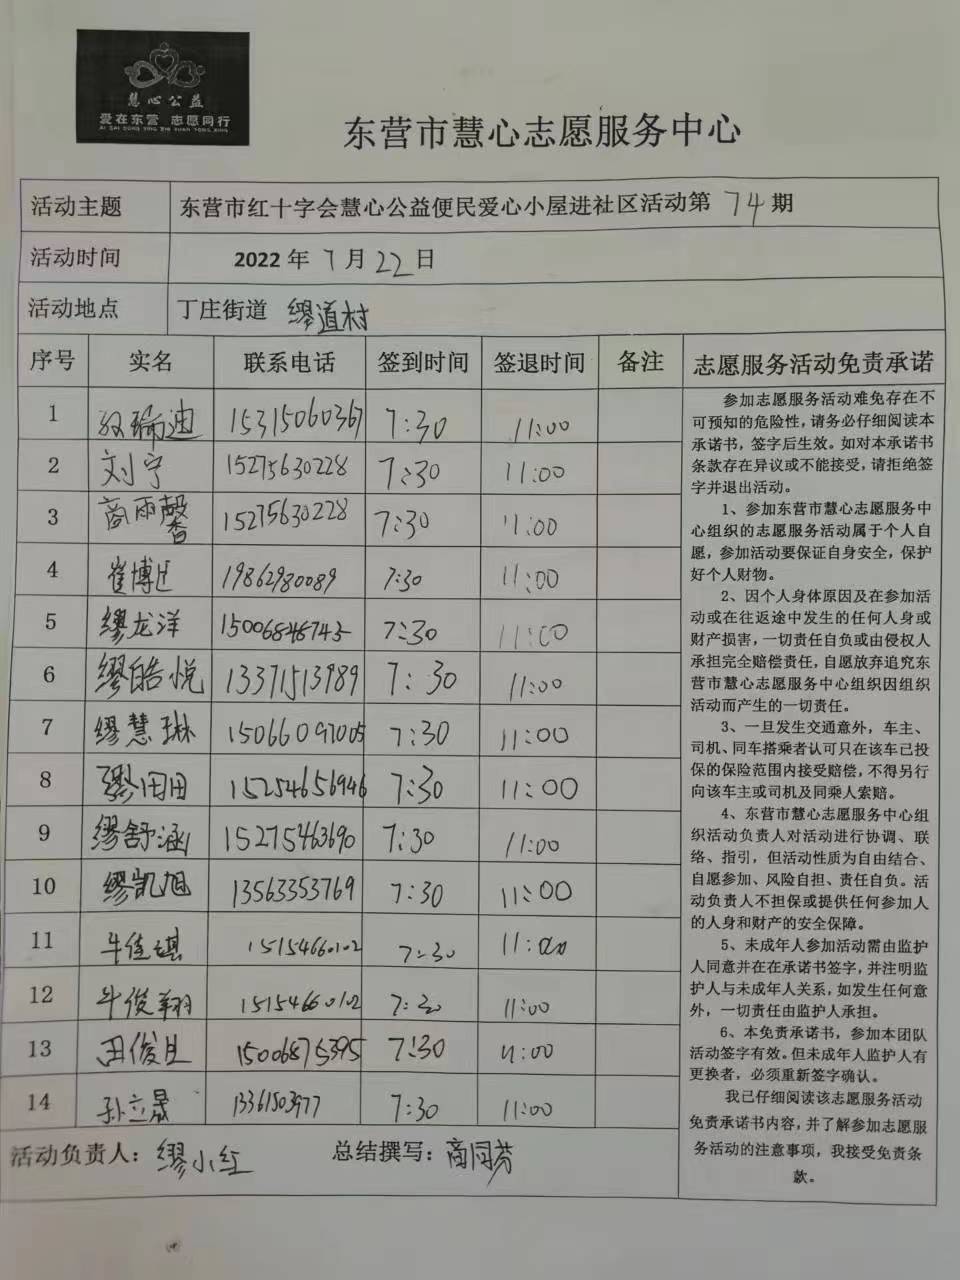 慧心公益
爱在东营 志愿同行
AI ZAI DONG YING ZHI YUAN TONG XING
东营市慧心志愿服务中心
活动主题 东营市红十字会慧心公益便民爱心小屋进社区活动第 74 期
活动时间 2022 年 7 月 22 日
活动地点 丁庄街道 缪道村
序号 实名 联系电话 签到时间 签退时间 备注
1 瑞迪 15315060367 7:30 11:00
2 刘宁 15275630228 7:30 11:00
3 商雨馨 15275630228 7:30 11:00
4 崔博 19862980089 7:30 11:00
5 缪龙洋 15006848743 7:30 11:00
6 缪皓悦 13371513989 7:30 11:00
7 缪慧琳 15066097005 7:30 11:00
8 缪田田 15254656946 7:30 11:00
9 缪舒涵 15275463690 7:30 11:00
10 缪凯旭 13563353769 7:30 11:00
11 牛佳琪 15154660102 7:30 11:00
12 牛俊翔 15154660102 7:30 11:00
13 田俊 15006875395 7:30 11:00
14 孙立晟 13361503977 7:30 11:00
活动负责人：缪小红 总结撰写：商同芬
志愿服务活动免责承诺
参加志愿服务活动难免存在不
可预知的危险性，请务必仔细阅读本
承诺书，签字后生效。如对本承诺书
条款存在异议或不能接受，请拒绝签
字并退出活动。
1、参加东营市慧心志愿服务中
心组织的志愿服务活动属于个人自
愿，参加活动要保证自身安全，保护
好个人财物。
2、因个人身体原因及在参加活
动或在往返途中发生的任何人身或
财产损害，一切责任自负或由侵权人
承担完全赔偿责任，自愿放弃追究东
营市慧心志愿服务中心组织因组织
活动而产生的一切责任。
3、一旦发生交通意外，车主、
司机、同车搭乘者认可只在该车已投
保的保险范围内接受赔偿，不得另行
向该车主或司机及同乘人索赔。
4、东营市慧心志愿服务中心组
织活动负责人对活动进行协调、联
络、指引，但活动性质为自由结合、
自愿参加、风险自担、责任自负。活
动负责人不担保或提供任何参加人
的人身和财产的安全保障。
5、未成年人参加活动需由监护
人同意并在在承诺书签字，并注明监
护人与未成年人关系，如发生任何意
外，一切责任由监护人承担。
6、本免责承诺书，参加本团队
活动签字有效。但未成年人监护人有
更换者，必须重新签字确认。
我已仔细阅读该志愿服务活动
免责承诺书内容，并了解参加志愿服
务活动的注意事项，我接受免责条
款。